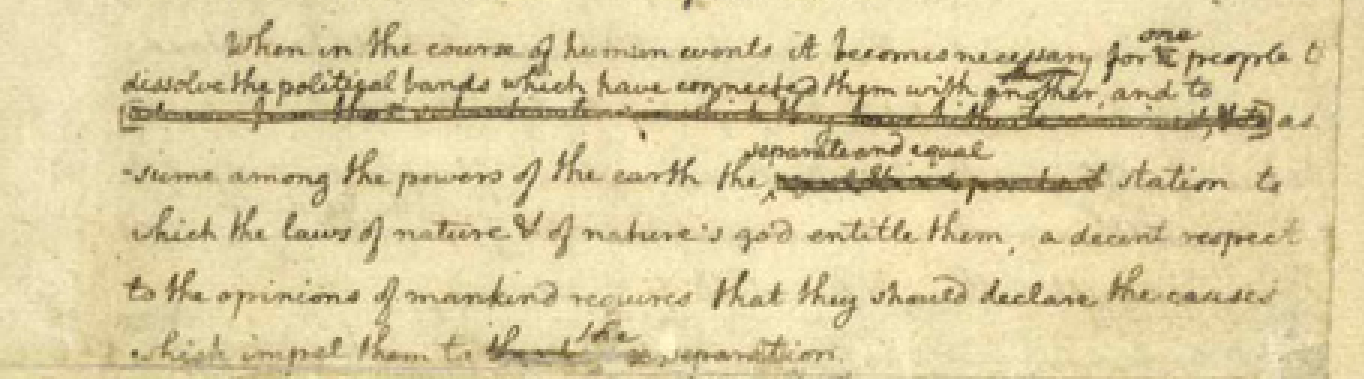 When in the course of human events it becomes necessary for one people t
dissolve the political bands which have connected them with another, and to
which they have hitherto remained, & to as
separate and equal
-sume among the powers of the earth the station to
which the laws of nature & of nature's god entitle them, a decent respect
to the opinions of mankind requires that they should declare the causes
which impel them to the separation.